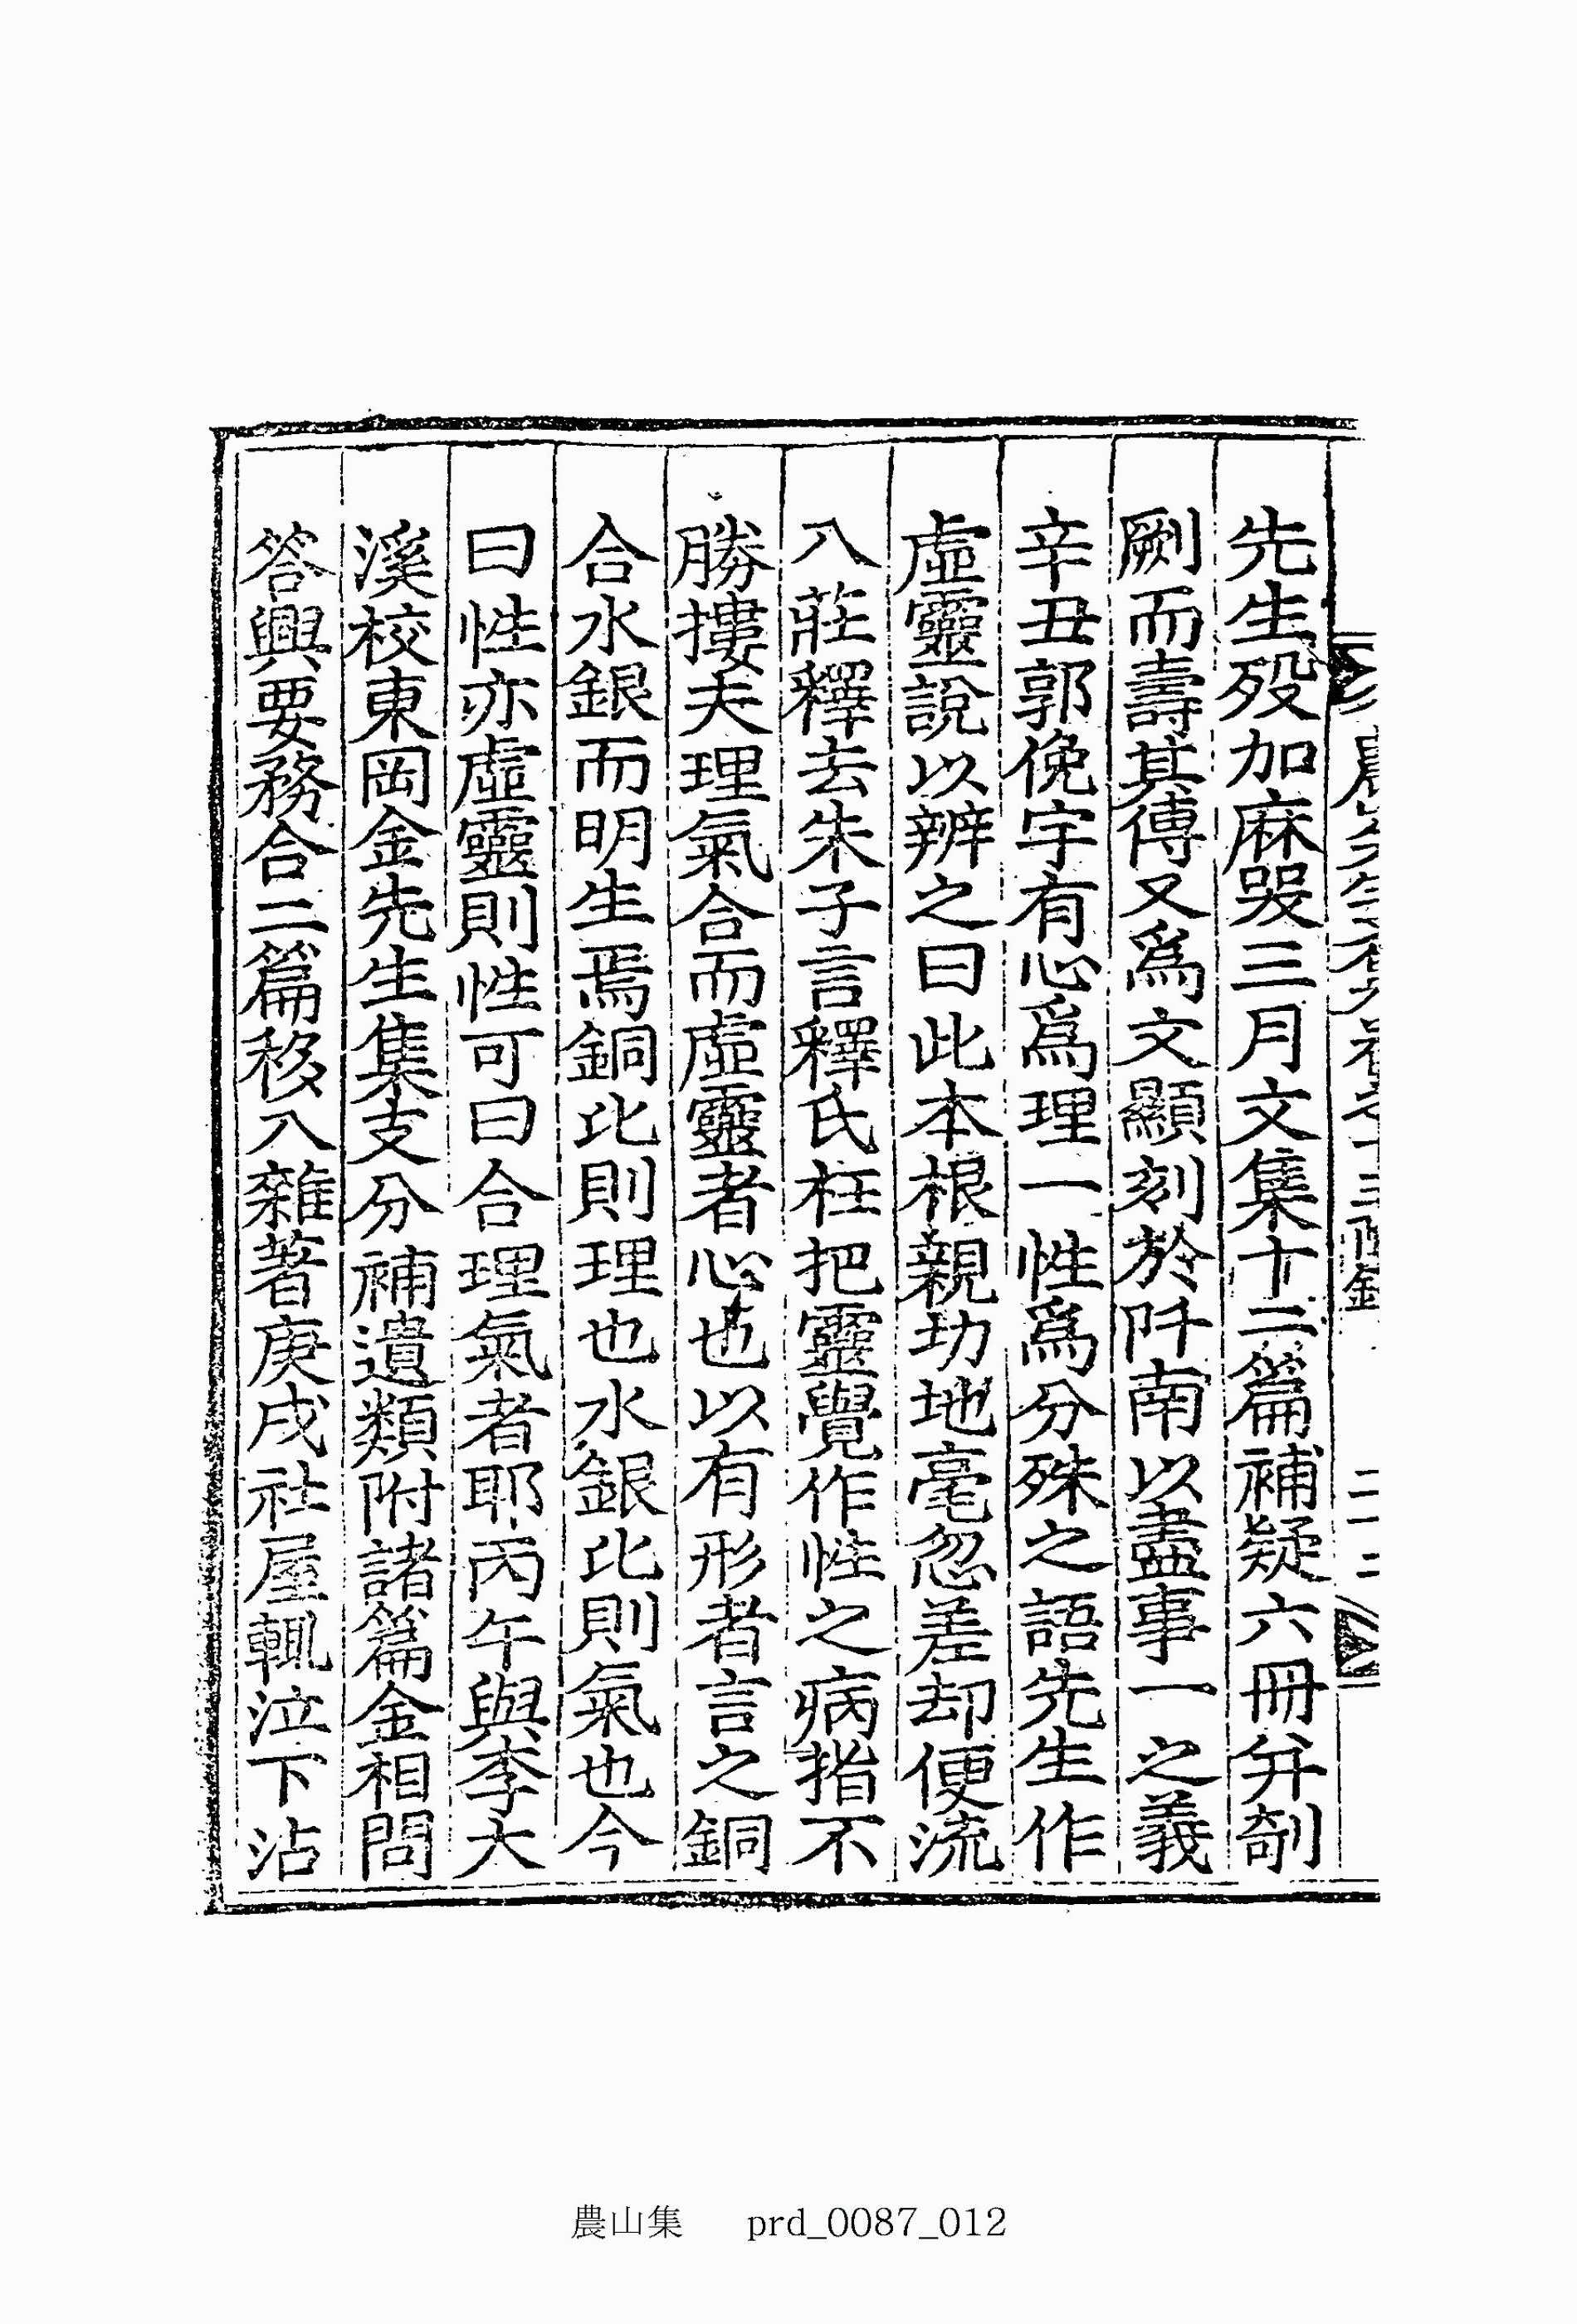 先生歿加麻哭三月文集十二篇補疑六冊弁剞
劂而壽其傳又爲文顯刻於阡南以盡事一之義
辛丑郭俛宇有心爲理一性爲分殊之語先生作
虛靈說以辨之曰此本根親功地毫忽差却便流
入莊釋去朱子言釋氏枉把靈覺作性之病指不
勝摟夫理氣合而虛靈者心也以有形者言之銅
合水銀而明生焉銅比則理也水銀比則氣也今
曰性亦虛靈則性可曰合理氣者耶丙午與李大
溪校東岡金先生集支分補遺類附諸篇金相問
答興要務合二篇移入雜著庚戌社屋輒泣下沾
農山集 prd_0087_012